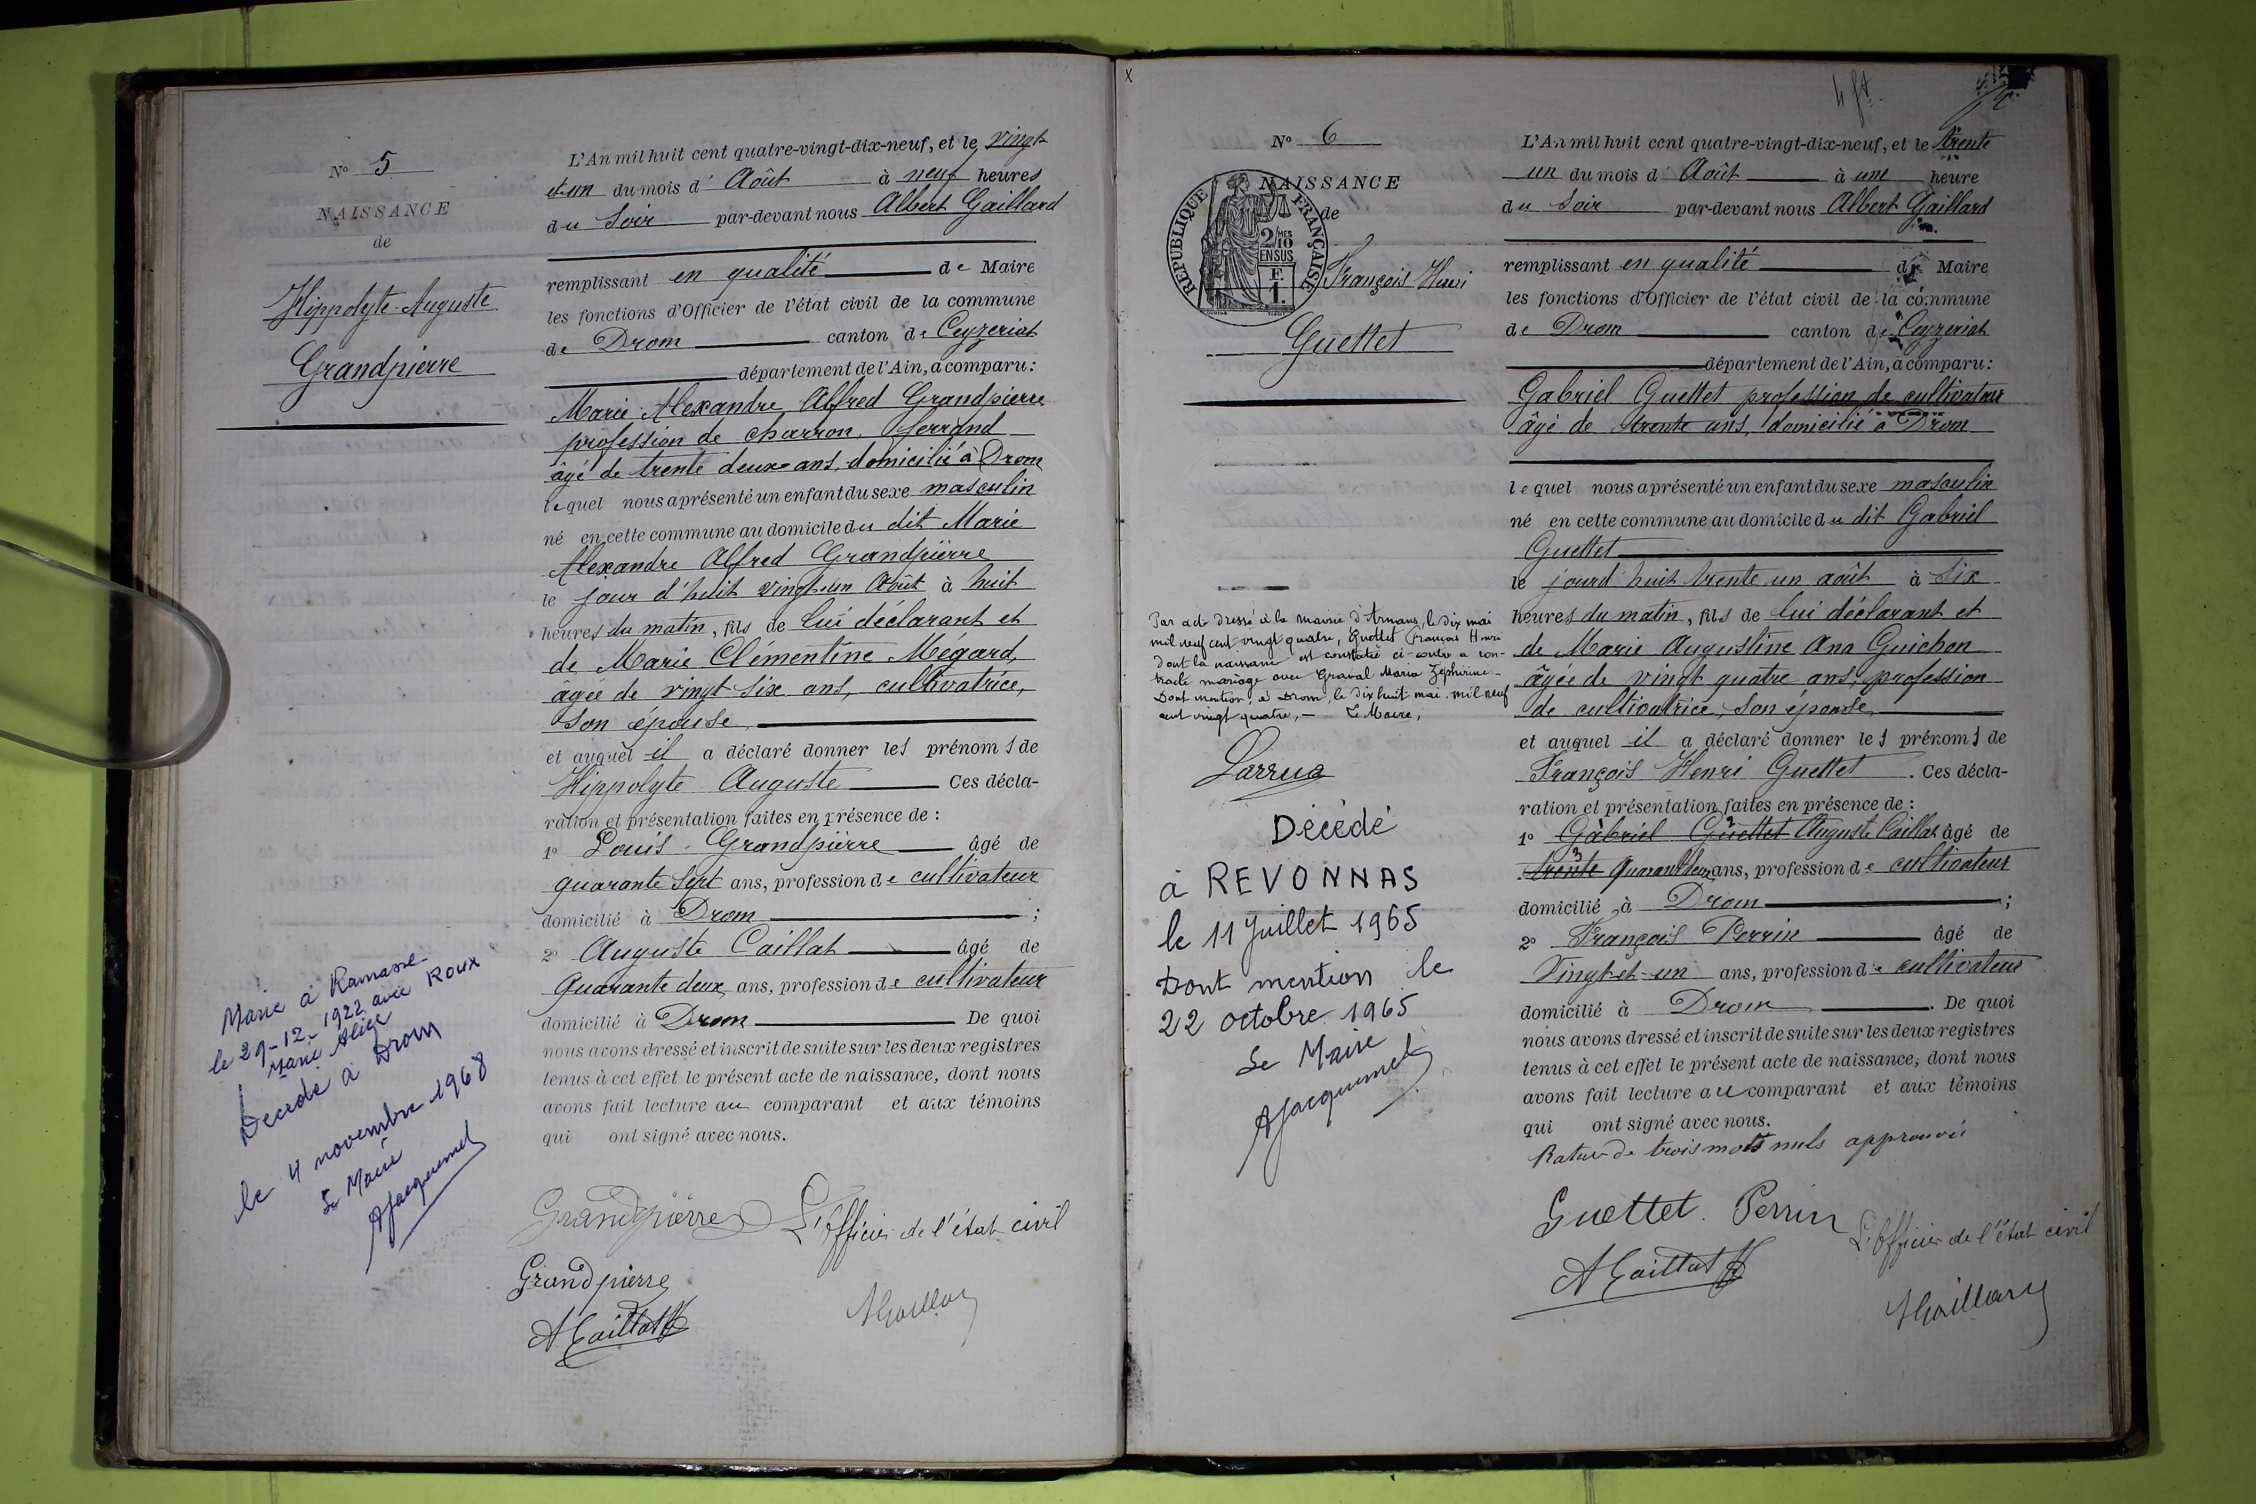 N° 5
NAISSANCE
de
Hippolyte-Auguste
Grandpierre
Marié à Ramasse
le 29-12-1922 avec ROUX
Marie Alice
Décédé à Drom
le 4 novembre 1968
Le Maire
AJacquemet
L'An mil huit cent quatre-vingt-dix-neuf, et le vingt
et un du mois d' Août à neuf heures
du Soir par-devant nous Albert Gaillard
remplissant en qualité de Maire
les fonctions d'Officier de l'état civil de la commune
de Drom canton de Ceyzeriat
département de l'Ain, a comparu :
Marie Alexandre Alfred Grandpierre
profession de charron, ferrand
âgé de trente deux ans, domicilié à Drom
lequel nous a présenté un enfant du sexe masculin
né en cette commune au domicile du dit Marie
Alexandre Alfred Grandpierre
le jour d'huit vingt un Août à huit
heures du matin, fils de lui déclarant et
de Marie Clémentine Mégard,
âgée de vingt six ans, cultivatrice,
son épouse
et auquel il a déclaré donner les prénoms de
Hippolyte Auguste Ces décla-
ration et présentation faites en présence de :
1° Louis Grandpierre âgé de
quarante sept ans, profession de cultivateur
domicilié à Drom ;
2° Auguste Caillat âgé de
Quarante deux ans, profession de cultivateur
domicilié à Drom De quoi
nous avons dressé et inscrit de suite sur les deux registres
tenus à cet effet le présent acte de naissance, dont nous
avons fait lecture au comparant et aux témoins
qui ont signé avec nous.
Grandpierre L'officier de l'état civil
Grandpierre
ACaillat
AGaillard
X
4 ft.
N° 6
NAISSANCE
de
RÉPUBLIQUE FRANÇAISE
2/10 MES
EN SUS
F.
1.
François Henri
Guettet
Par acte dressé à la mairie d'Arnans, le dix mai
mil neuf cent vingt quatre, Guettet François Henri
dont la naissance est constatée ci-contre a con-
tracté mariage avec Graval Maria Zéphirine -
Dont mention, à Drom, le dix huit mai mil neuf
cent vingt quatre, - Le Maire,
Décédé
à REVONNAS
le 11 Juillet 1965
Dont mention le
22 octobre 1965
Le Maire
AJacquemet
L'An mil huit cent quatre-vingt-dix-neuf, et le trente
un du mois d' Août à une heure
du Soir par-devant nous Albert Gaillard
remplissant en qualité de Maire
les fonctions d'Officier de l'état civil de la commune
de Drom canton de Ceyzeriat
département de l'Ain, a comparu :
Gabriel Guettet profession de cultivateur
âgé de trente ans, domicilié à Drom
lequel nous a présenté un enfant du sexe masculin
né en cette commune au domicile du dit Gabriel
Guettet
le jourd huit trente un août à six
heures du matin, fils de lui déclarant et
de Marie Augustine Ana Guichon
âgée de vingt quatre ans, profession
de cultivatrice, son épouse
et auquel il a déclaré donner les prénoms de
François Henri Guettet . Ces décla-
ration et présentation faites en présence de :
1° Gabriel Guettet Auguste Caillat âgé de
trente Quarante deux ans, profession de cultivateur
domicilié à Drom ;
2° François Perrin âgé de
Vingt-et-un ans, profession de cultivateur
domicilié à Drom . De quoi
nous avons dressé et inscrit de suite sur les deux registres
tenus à cet effet le présent acte de naissance, dont nous
avons fait lecture au comparant et aux témoins
qui ont signé avec nous.
Rature de trois mots nuls approuvée
Guettet. Perrin
L'officier de l'état civil
ACaillat
AGaillard